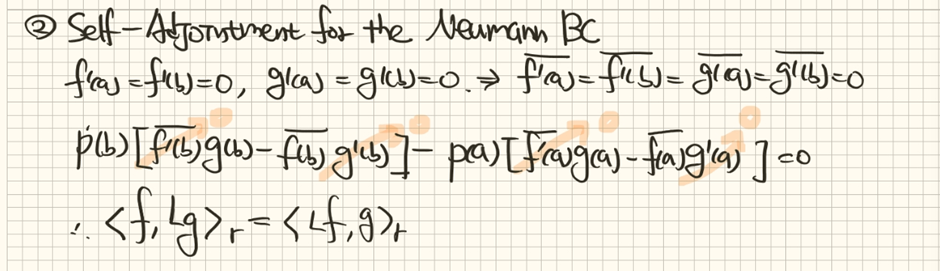 ② Self-Adjonstment for the Neumann BC
f'(a) = f'(b) = 0, g'(a) = g'(b) = 0. ⇒ \overline{f'(a)} = \overline{f'(b)} = \overline{g'(a)} = \overline{g'(b)} = 0
p(b)[\overline{f'(b)}g(b) - \overline{f(b)}g'(b)] - p(a)[\overline{f'(a)}g(a) - \overline{f(a)}g'(a)] = 0
∴ <f, Lg>_r = <Lf, g>_r